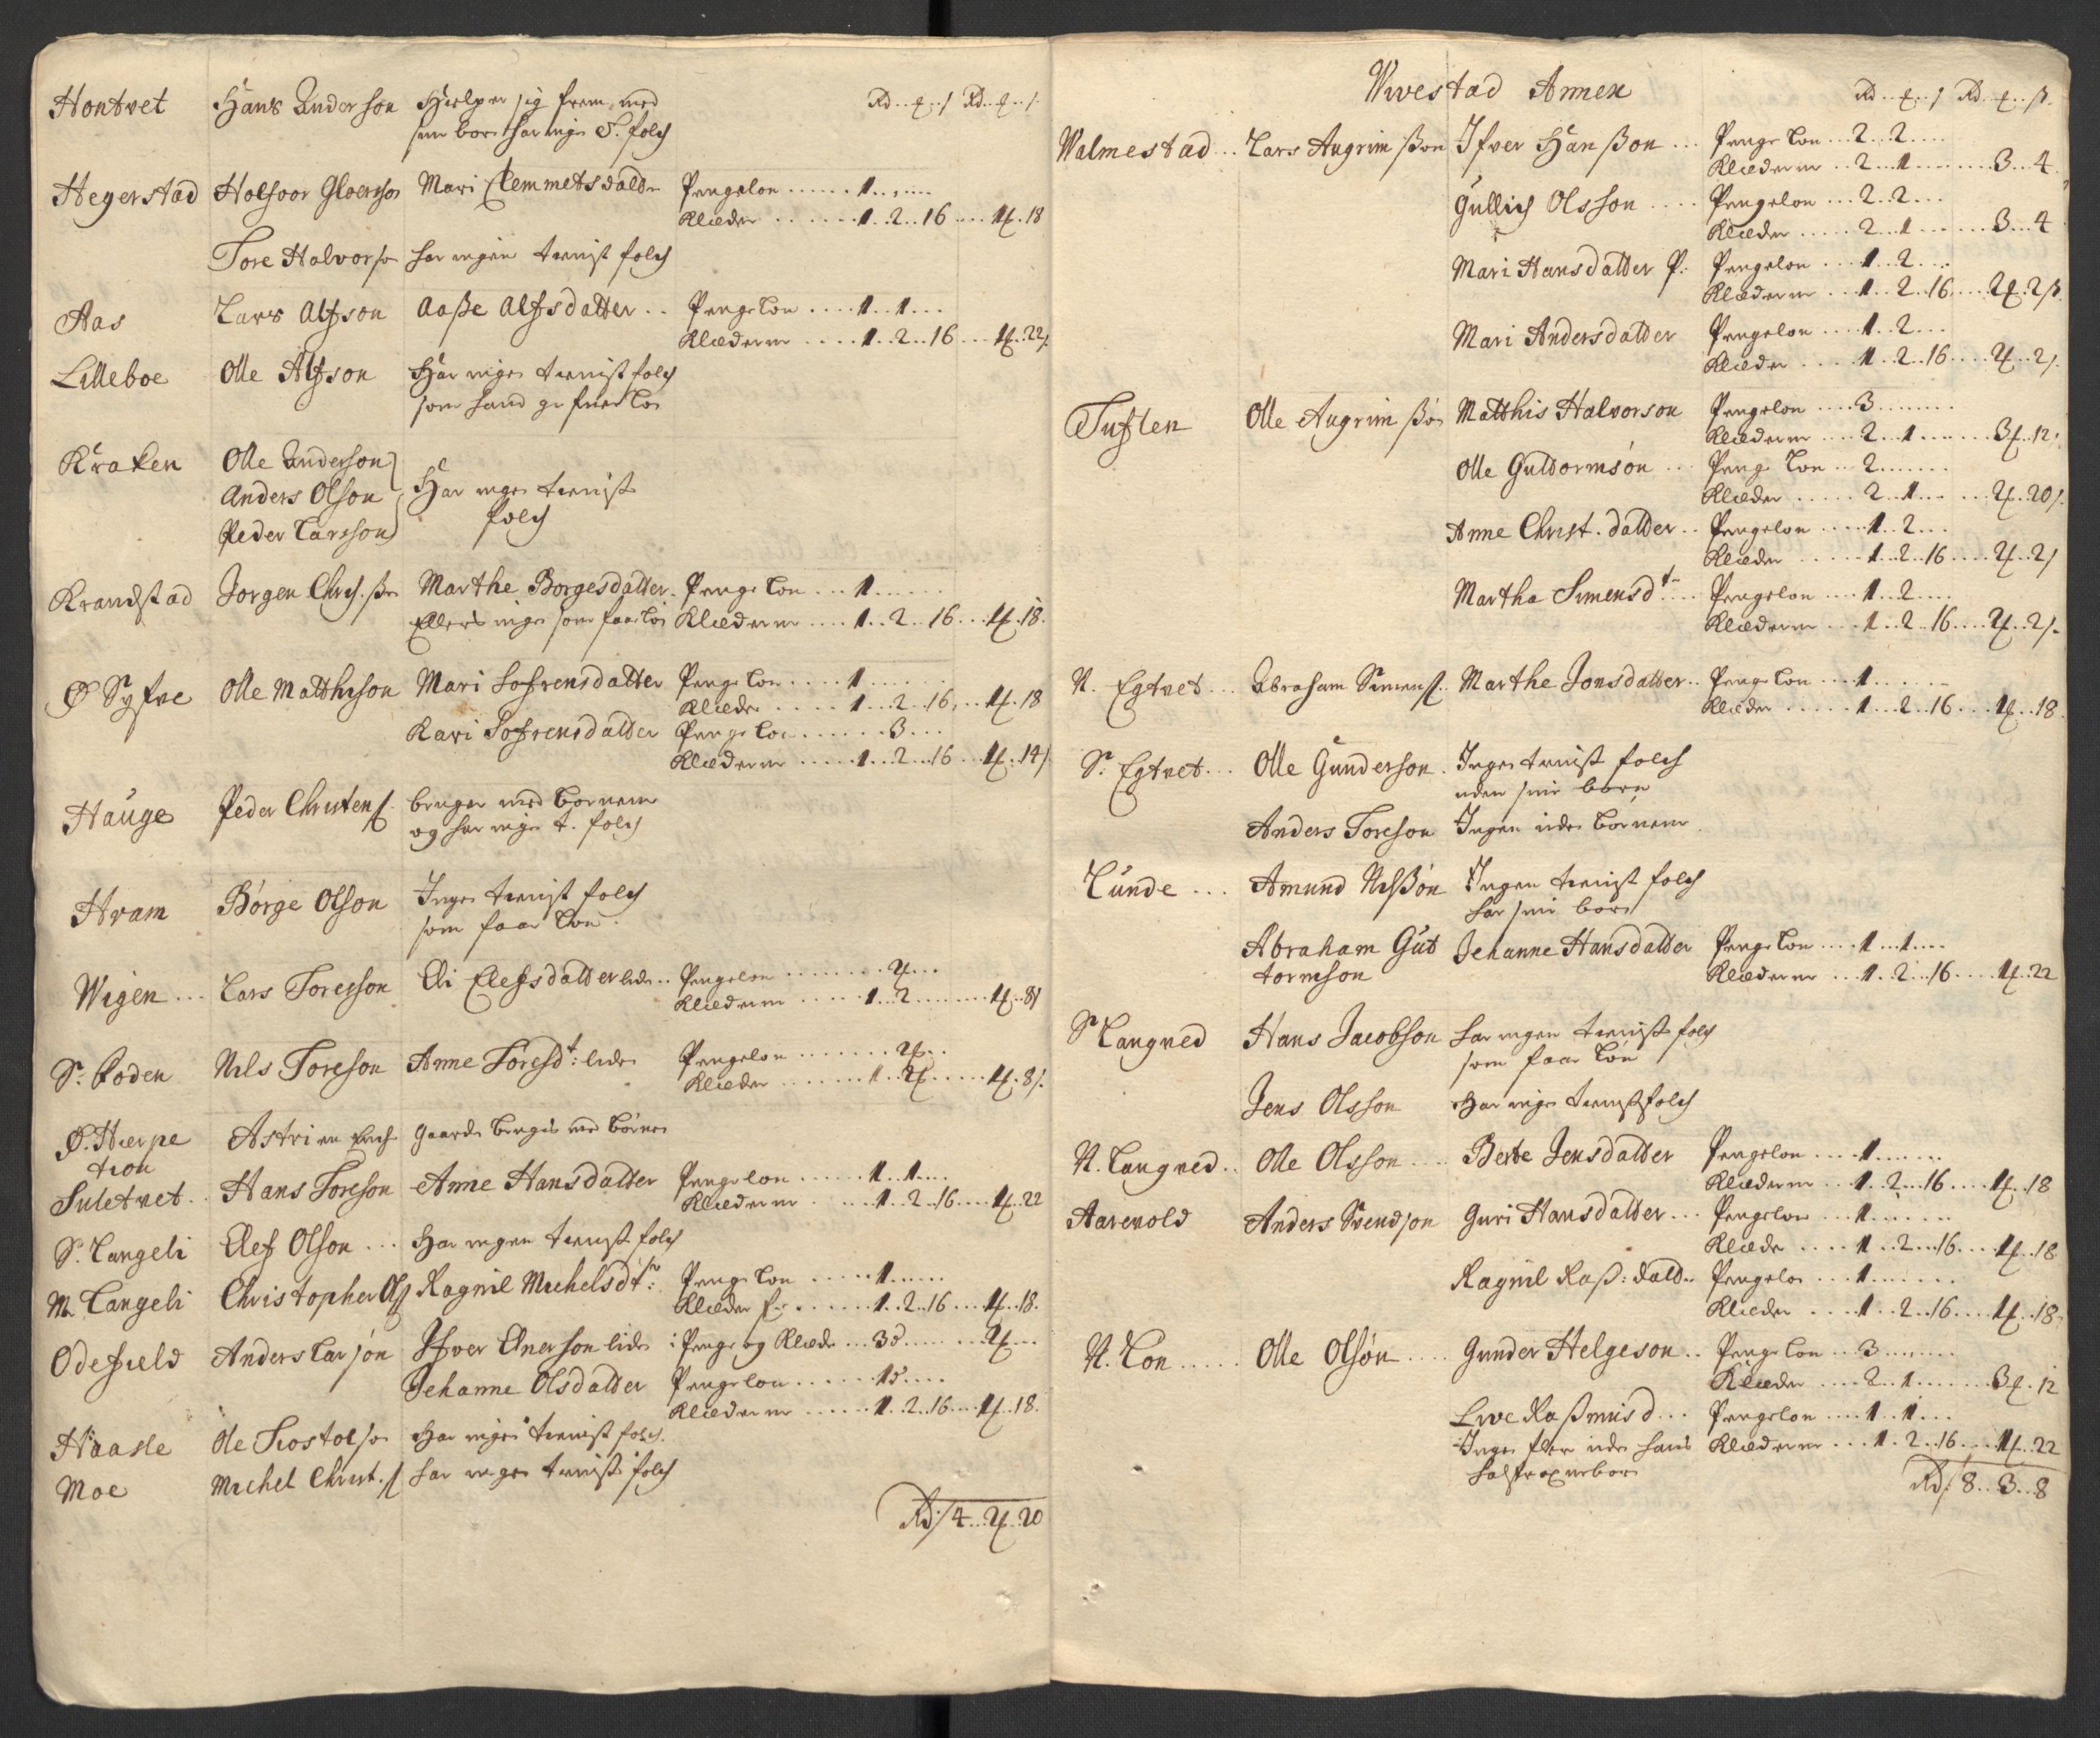 Hontvet Hans Anderson Hielper sig frem med Rd. ... Rd. ...
sine børn har ingen T. folch
Hegerstad Holfoor Gloersson Mari Clemmetsdatter Pengeløn ...... 1 ......
Klæder ...... 1..2..16 .... 1...18
Tore Halvorss. har ingen tienist folch
Aas Lars Alfson Aaße Alfsdatter .. Penge Løn .... 1..1...
Klæderne .... 1..2..16 ... 1...22
Lilleboe Olle Alfson Har ingen tienist folch
som hand gifuer Løn
Kraken Olle Anderson
Anders Olson Har ingen tienist
Peder Larsson folch
Krandstad Jorgen Chris. ßen Marthe Borgesdatter. Penge Løn ... 1 ......
Ellers ingen som faar Løn Klæderne .... 1..2..16 ... 1...18.
Ø Syfve Olle Matthison Mari Sofrensdatter Penge Løn .... 1 .....
Klæder .... 1..2..16 ... 1...18
Kari Sofrensdatter Penge Løn ...... 3 ...
Klæderne ..... 1..2..16 .. 1...14
Hauge Peder Christens. bruger med børnene
og har ingen t. folch
Hvam Børge Olson Ingen tienist folch
som faar Løn.
Wigen ... Lars Toresson Eli Elefsdatter liden .. Pengeløn ........ 2 ...
Klæderne ...... 1..2 ........ 1...8
S. Foden Nils Toreson Anne Toresd.t: liden Pengeløn ....... 2 ...
Klæder ....... 1..2 ..... 1...8
Ø. Hierpe Astri en Enche Gaarden bruges med børnene
tion
Suletvet. Hans Toreson Anne Hansdatter Pengeløn ...... 1..1 ...
Klæderne .... 1..2..16 .... 1...22
S. Langeli Elef Olson ... Har ingen tienist folch
M. Langeli Christopher Ols. Ragnil Michelsdt: Penge Løn ..... 1 ......
Klæder ...... 1..2..16 .... 1...18.
Odefield Anders Larsøn Ifver Einerson liden i Penge og Klæder ... 3 ...... 2 ...
Jehanne Olsdatter Pengeløn ...... 1 ....
Klæderne ...... 1..2..16 ... 1...18.
Haasle Ole Tiostolss. Har ingen tienist folch.
Moe Michel Christ. s. har ingen tienist folch
Rd: 14..2..20
Wivestad Annex Rd. ... Rd. ... ß.
Walmestad .. Lars Augrim ßøn Ifver Hanßon ... Penge Løn ... 2..2 ....
Klæderne .. 2..1 ....... 3...4
Gullich Olsson .... Pengeløn ... 2..2 ...
Klæder ..... 2..1 ...... 3...4
Mari Hansdatter P. Pengeløn .... 1..2 ...
Klæderne ... 1..2..16 .... 2...2 ß.
Mari Andersdatter Pengeløn .... 1..2 ...
Klæder .... 1..2..16 .... 2...2
Tuften Olle Augrim ßøn Matthis Halvorson Pengeløn .... 3 .......
Klæderne ... 2..1 ....... 3...12
Olle Guldormsøn ... Penge Løn .. 2 .......
Klæder ..... 2..1 ...... 2...20
Anne Christ. datter .. Pengeløn ..... 1..2 ...
Klæder ..... 1..2..16 .... 2...2
Martha Simensd.t .. Pengeløn .... 1..2 ....
Klæderne ... 1..2..16 .... 2...2
N. Egtvet .. Abraham Simens. Marthe Jonsdatter .. Penge Løn ... 1 ......
Klæder ..... 1..2..16 ... 1...18
S. Egtvet ... Olle Gunderson. Ingen tienist folch
uden sine børn
Anders Toreson Ingen uden børnene
Lunde ... Amund Nilßøn Ingen tienist folch
har sine børn
Abraham Gut Jehanne Hansdatter Penge Løn .... 1..1 ....
tormson Klæderne ... 1..2..16 .... 1...22
S Langved Hans Jacobson har ingen tienist folch
som faar Løn
Jens Olsson Har ingen tienistfolch
N. Langved .. Olle Olsson .... Berte Jensdatter Pengeløn .... 1 ......
Klæderne ... 1..2..16 .... 1...18
Aarevold Anders Svendson Guri Hansdatter ... Pengeløn ... 1 ......
Klæder .... 1..2..16 .... 1...18
Ragnil Raß: datt.. Pengeløn ... 1 ......
Klæder .... 1..2..16 .... 1...18
N. Løn ..... Olle Olsøn .... Gunder Helgeson .. Penge Løn .. 3 ......
Klæder .... 2..1 ...... 3...12
Live Raßmus d ... Pengeløn .... 1..1 ...
Ingen fler uden hans Klæderne ... 1..2..16 ... 1...22
Rd: 18..3..8